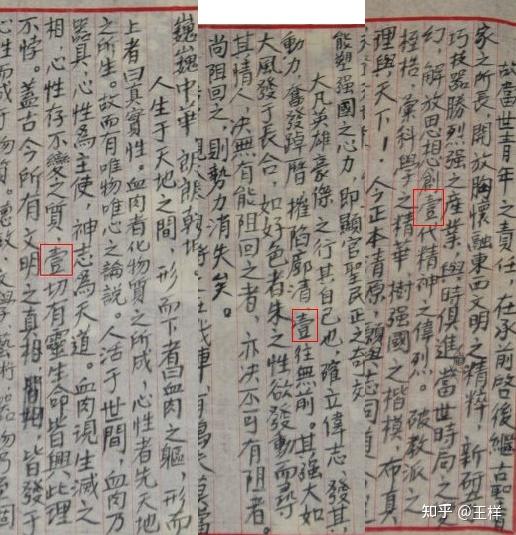 故當世青年之責任，在承前啓後繼古聖百
家之所長，開放胸懷融東西文明之精粹，新研
巧技器勝列强之產業，與時俱進當世時局之變
幻，解放思想創壹代精神之偉烈。破教派之
桎梏，彙科學之精華，樹强國之楷模，布真
理與天下！今正本清原，願與志同道
能塑强國之心力，即顯官聖民正之奇
大凡英雄豪傑之行其自己也，確立偉志，發其
動力，奮發踔厲，摧陷廓清，壹往無前。其强大如
大風發于長合，如好色者朱之性欲發動而尋
其情人，決無有能阻回之者，亦決不可有阻者。
尚阻回之，則勢力消失矣。
巍巍中華 朗朗乾
人生于天地之間，形而下者曰血肉之軀，形而
上者曰真實性。血肉者化物質之所成，心性者先天地
之所生。故而有唯物唯心之論說。人活于世間，血肉乃
器具，心性為主使，神志為天道。血肉現生滅之
相，心性存不變之質，壹切有靈生命皆與此理
不悖。蓋古今所有文明之真相，皆發于
心性而成于物質。德政、文學、藝術、器物乃至個
知乎 @王样